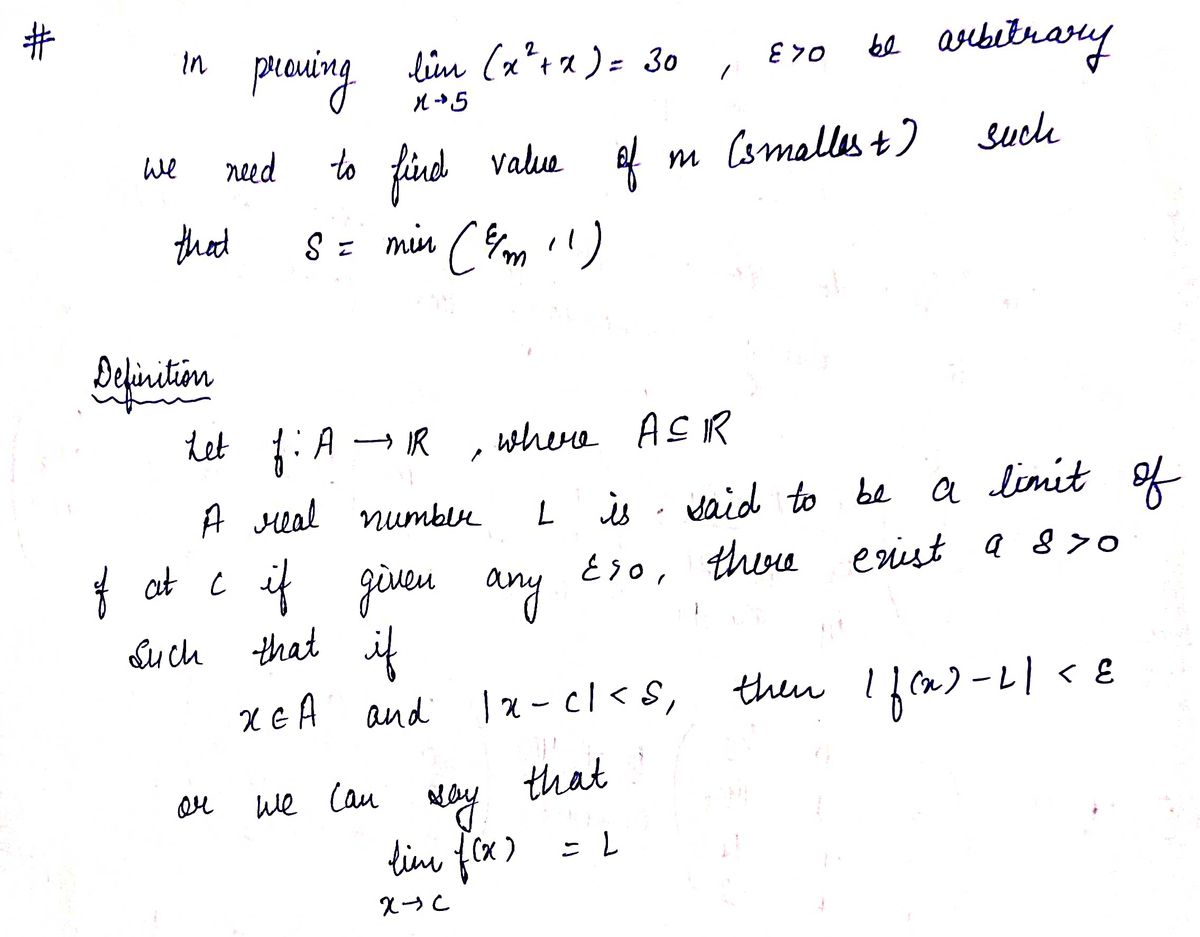 #
in proving lim (x² + x) = 30 , ε>0 be arbitrary
x→5
we need to find value of m (smallest) such
that δ = min (ε/m , 1)
Definition
Let f : A → ℝ , where A ⊆ ℝ
A real number L is said to be a limit of
f at c if given any ε>0, there exist a δ>0
such that if
x ∈ A and |x - c| < δ, then |f(x) - L| < ε
or we can say that
lim f(x) = L
x→c